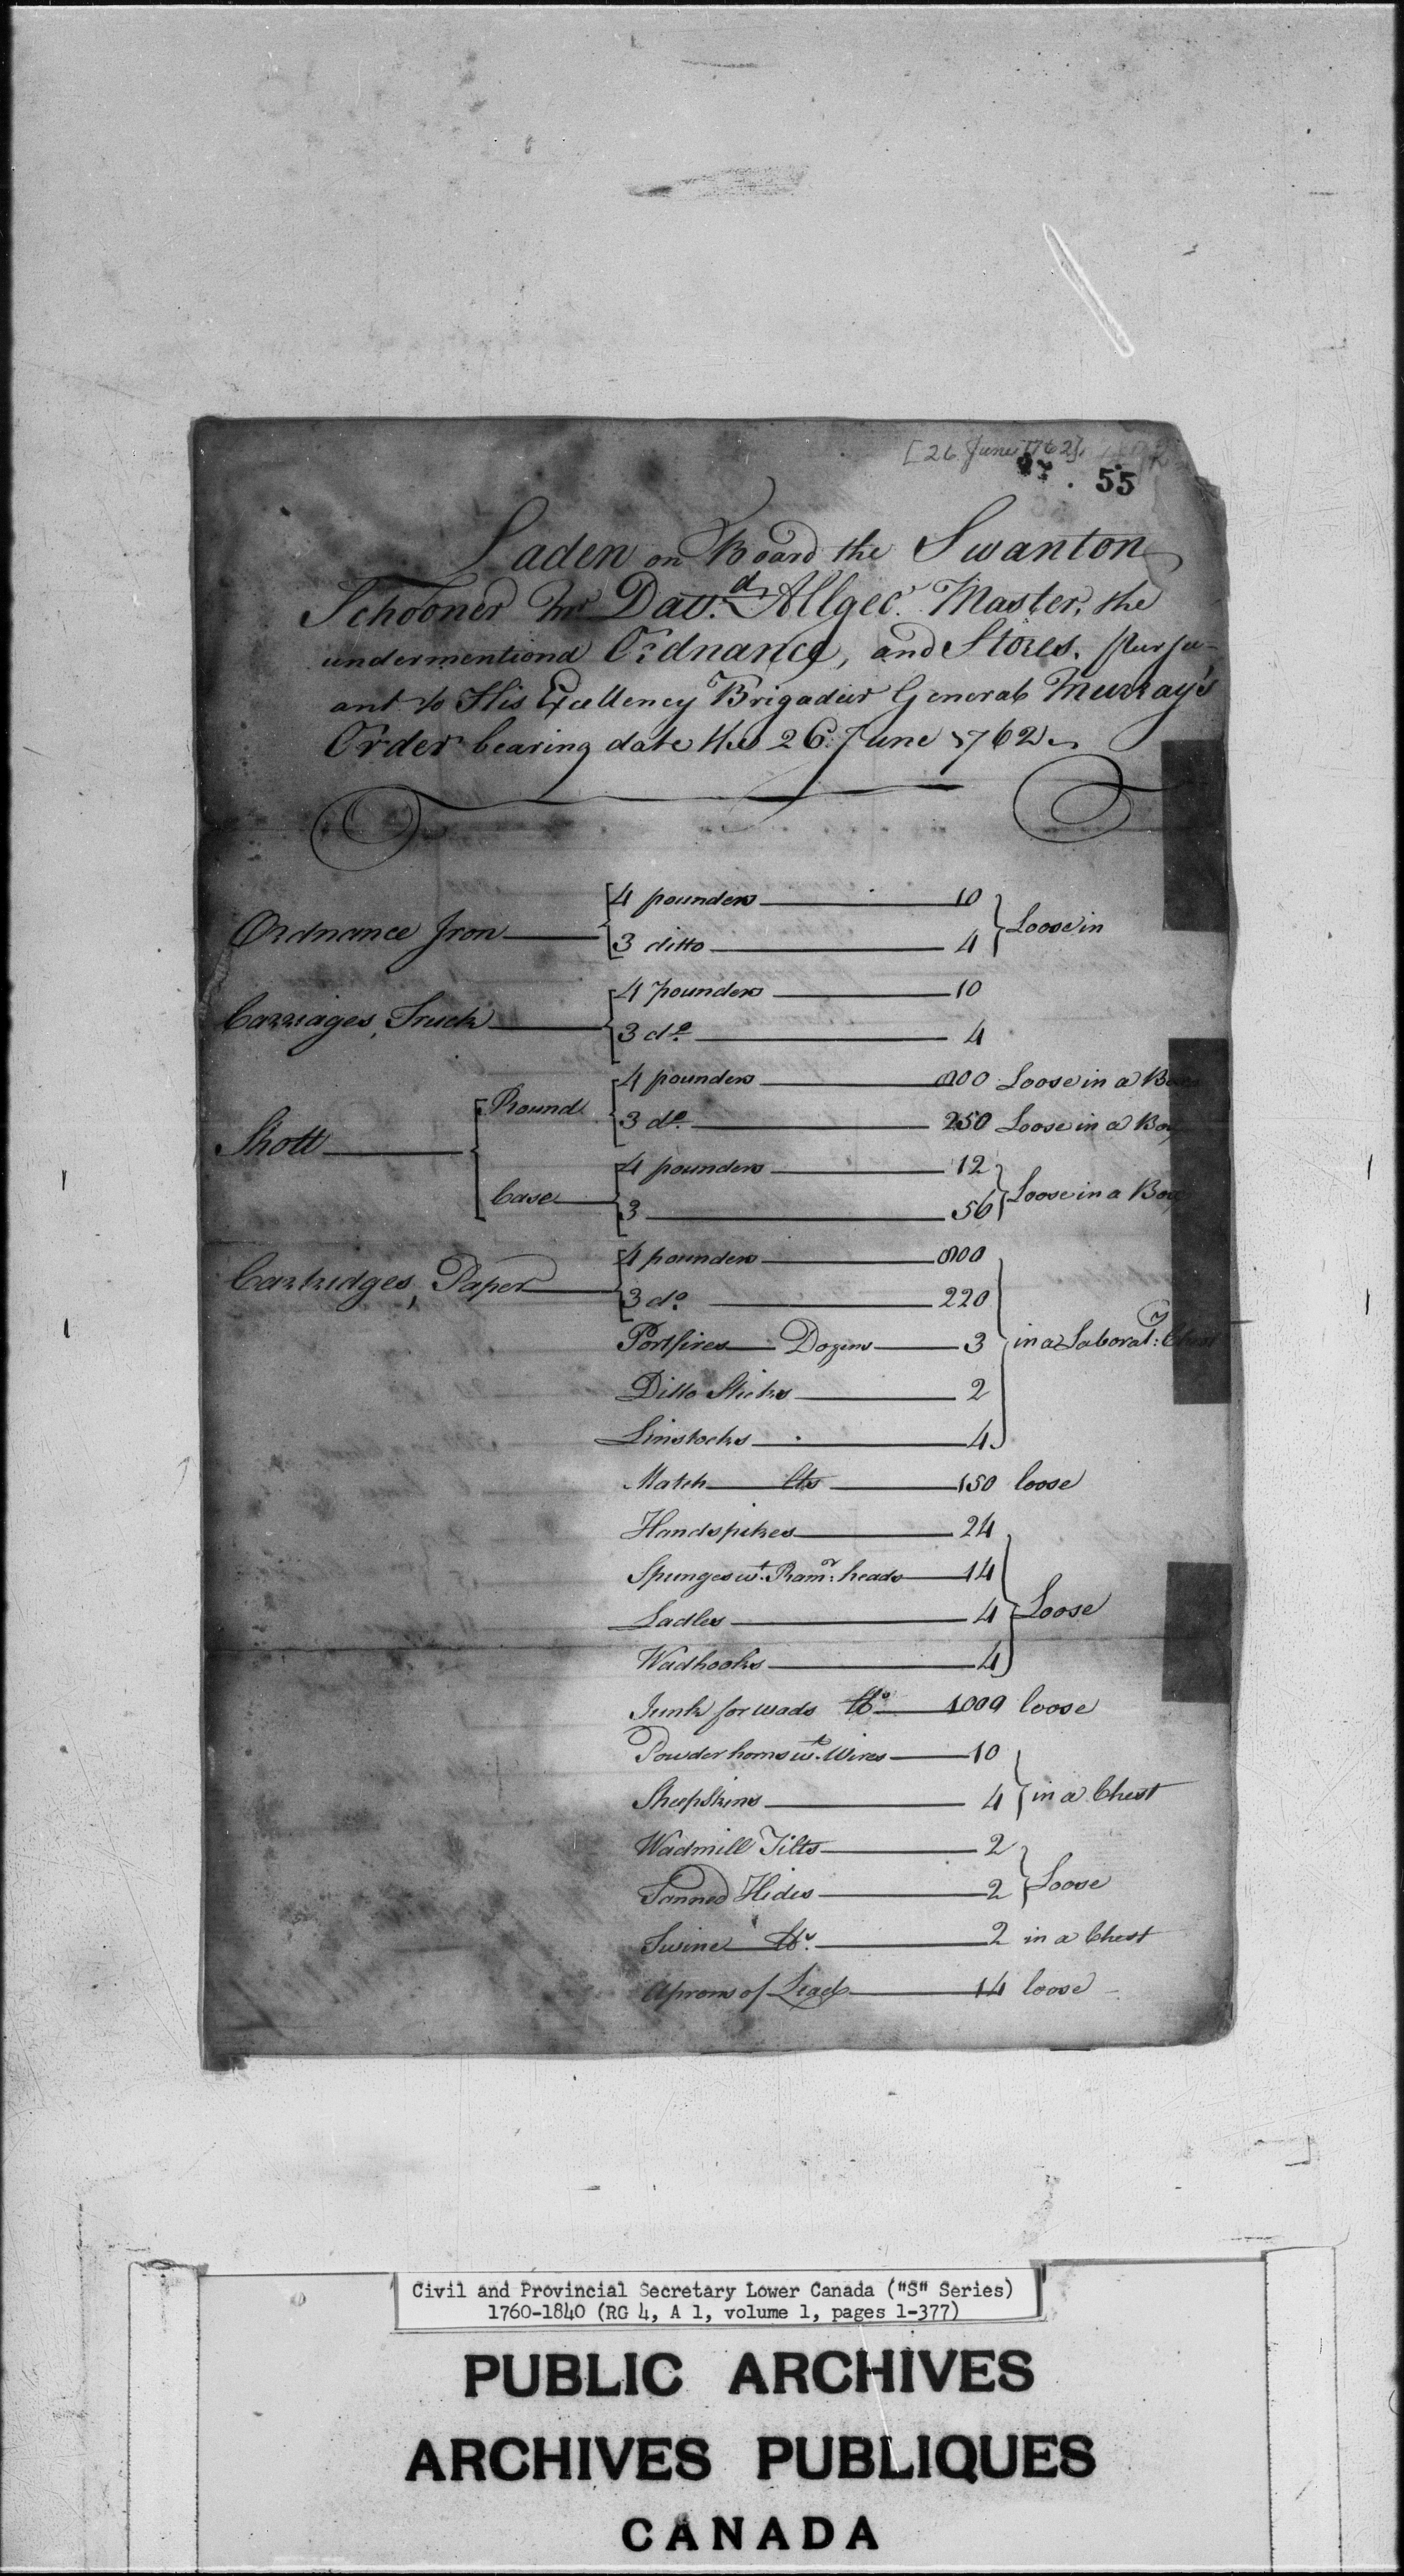 [26 June 1762]
55
Laden on Board the Swanton
Schooner Mr Davd. Allgeo. Master, the
undermentiond Ordnance, and Stores, pursu-
ant to His Excellency Brigadier General Murray's
Order bearing date the 26: June 1762
Ordnance Iron 4 pounders 10 Loose in
3 ditto 4
Carriages, Truck 4 pounders 10
3 do. 4
Shott Round 4 pounders 800 Loose in a
3 do. 250 Loose in a Box
Case 4 pounders 12 Loose in a Box
3 56
Cartridges, Paper 4 pounders 800
3 do. 220
Portfires Dozens 3 in a Laborat:y Chest
Ditto Sticks 2
Linstocks 4
Match lbs 150 loose
Handspikes 24
Spunges wt. Ramr: heads 14
Ladles 4 Loose
Wadhooks 4
Junk for wads lb. 1000 loose
Powder horns wt. Wires 10
Sheepskins 4 in a Chest
Wadmill Tilts 2
Tanned Hides 2 Loose
Twine lb. 2 in a Chest
Aprons of Lead 14 loose
Civil and Provincial Secretary Lower Canada ("S" Series)
1760-1840 (RG 4, A 1, volume 1, pages 1-377)
PUBLIC ARCHIVES
ARCHIVES PUBLIQUES
CANADA